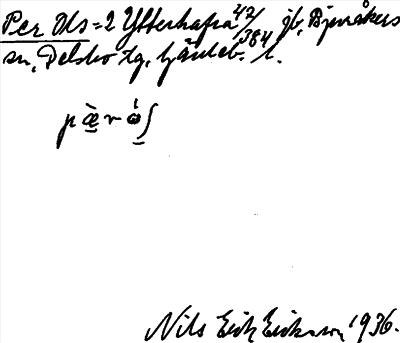 Per Ols = 2 Ytterhafra 42/384 jb, Bjuråkers
sn, Delsbo tg, Gävleb. l.
pæ̀rώʃ
Nils Erik Eriksson 1936.